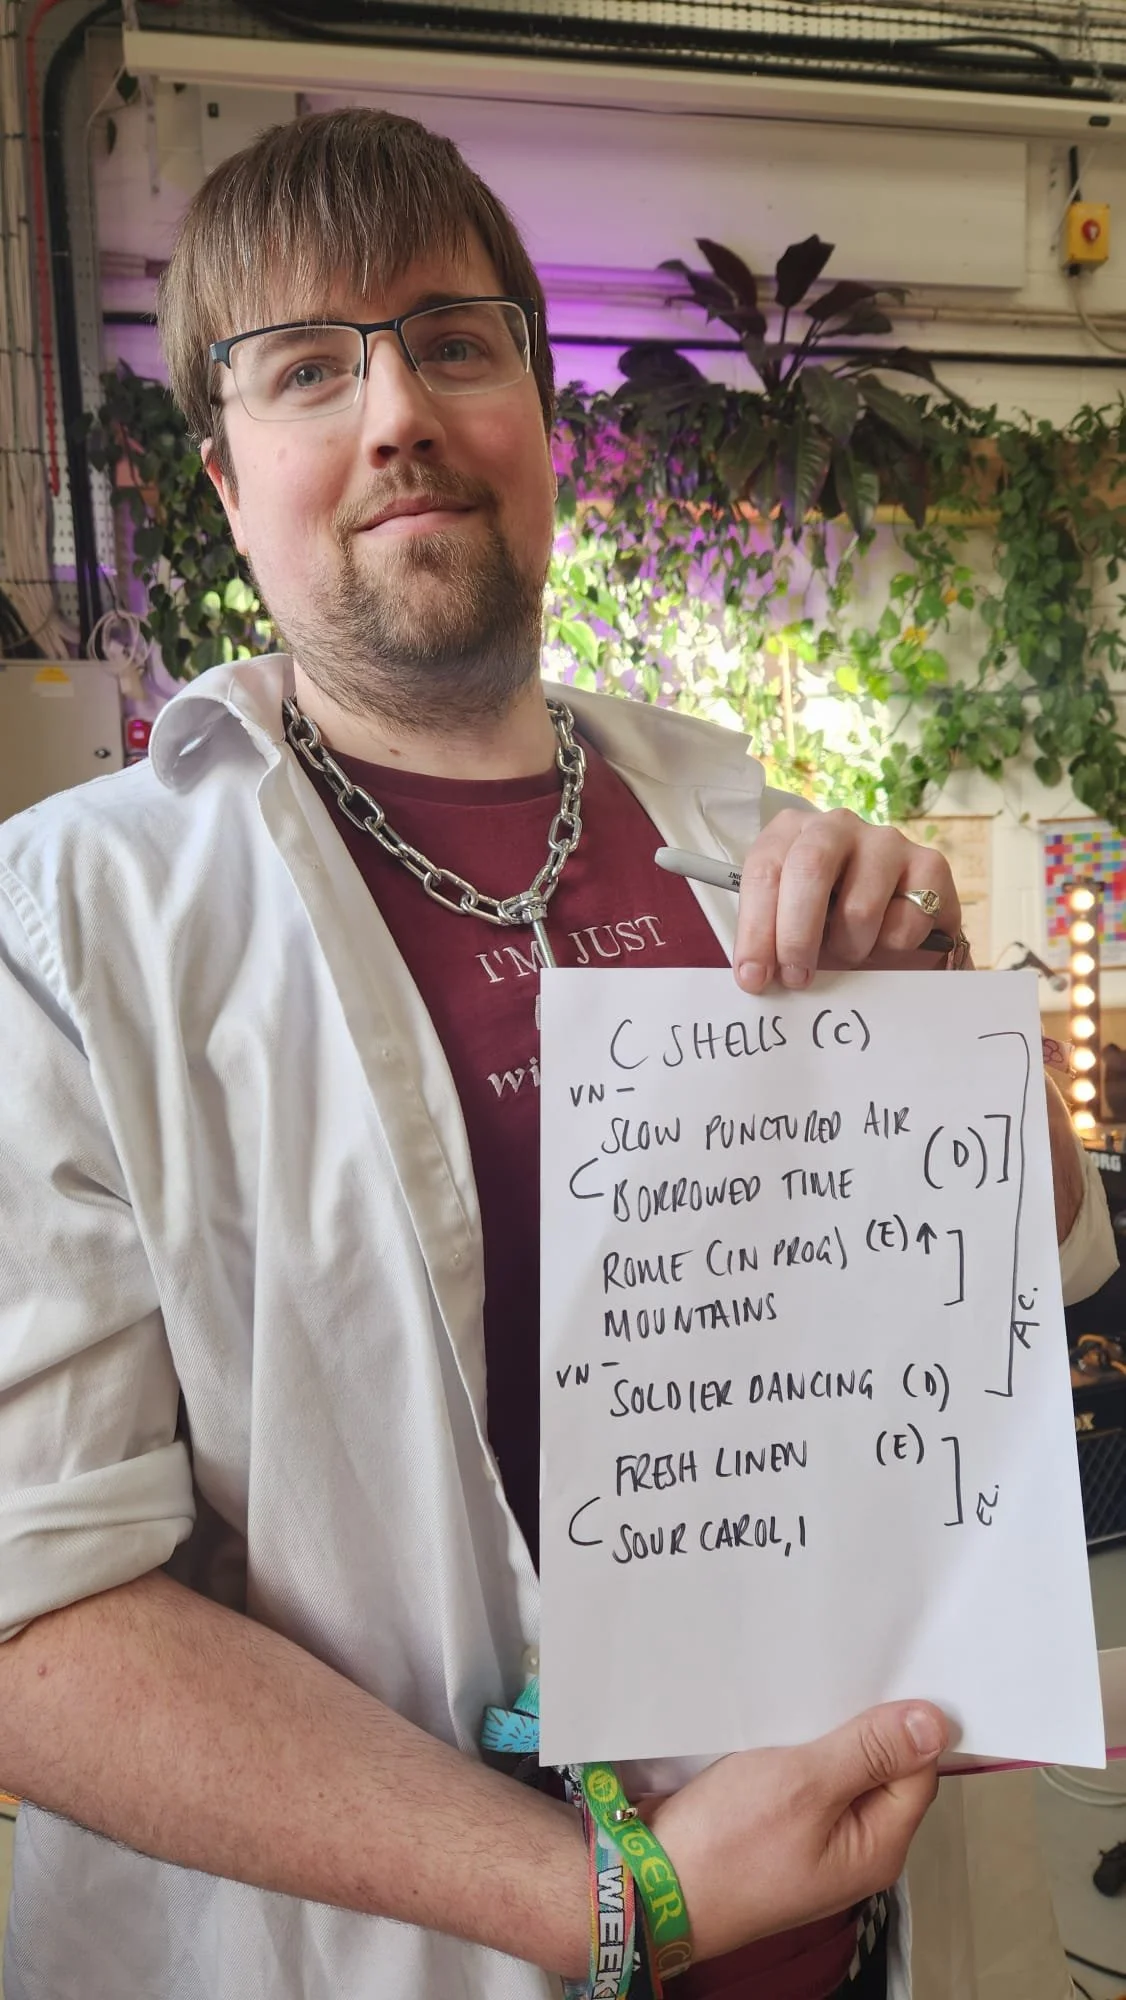 I'M JUST
wi
C SHELLS (C)
VN -
SLOW PUNCTURED AIR
BORROWED TIME (D)
ROME (IN PROG) (E) ↑
MOUNTAINS
VN -
SOLDIER DANCING (D)
FRESH LINEN (E)
SOUR CAROL, 1
AC.
WEEK